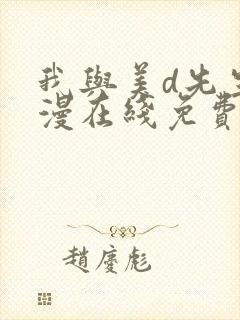 我與美d先生
漫在綫免費
趙慶彪